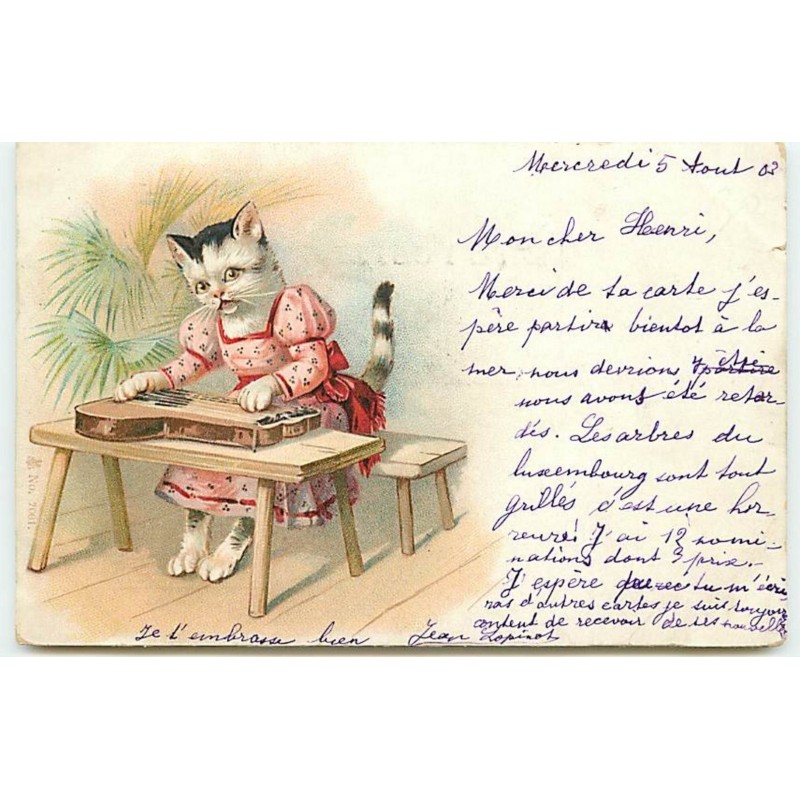 Mercredi 5 Aout 03
Mon cher Henri,
Merci de ta carte j'es-
père partir bientot à la
mer, nous devrions y être
nous avons été retar-
dés. Les arbres du
luxembourg sont tout
grillés c'est une hor-
reure! J'ai 12 nomi-
nations dont 3 prix.
J'espère que tu m'écri
ras d'autres cartes je suis toujours
content de recevoir de tes nouvelles
Je t'embrasse bien Jean Lopinot
No. 7001.